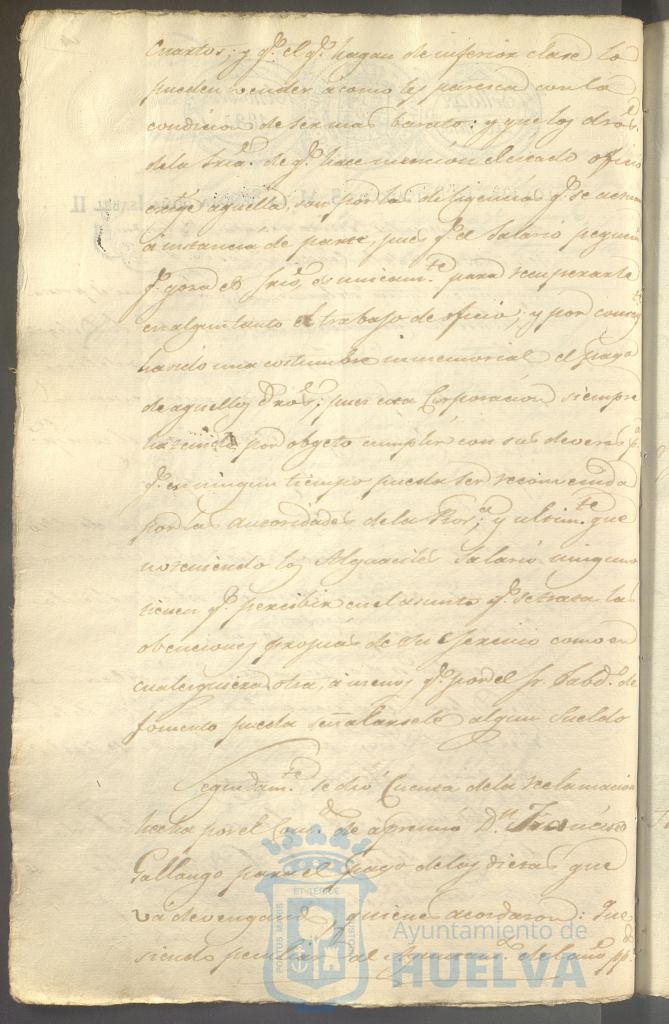 cuartos; y q.e el q.e hagan de inferior clase lo
pueden vender a como les paresca con la
condicion de ser mas barato: y que los dros.
de la Sria. de q.e hace mencion el citado oficio
exige aquella, son por las diligencias q.e se actuan
a instancia de parte, pues q.e el Salario pequeño
q.e goza el Srio. es unicam.te para recuperarle
en algun tanto el trabajo de oficio; y por
havido una costumbre inmemorial el pago
de aquellos dros.: pues esta Corporacion siempre
ha tenido por objeto cumplir con sus deveres
q.e en ningun tiempo pueda ser reconvenida
por las autoridades de la y ultim.te que
no teniendo los Alguaciles Salario ninguno
tienen q.e percibir en el asunto q.e se trata las
obenciones propias de su exercicio como en
cualesquiera otra, a menos q.e por el Sr. Subd.o de
fomento pueda señalarsele algun Sueldo
Seguidam.te se dió Cuenta de la reclamacion
hecha por el Com.do de apremio D.n Francisco
Gallango para el pago de las dietas que
vá devengando quienes acordaron: Que
siendo peculiar al Ayuntam.to del año pp.do
ET TERRAE
PORTUS MARIS
CUSTODIA
Ayuntamiento de
HUELVA
ISABEL II